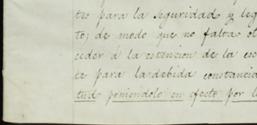 tes para la seguridad y leg
to; de modo que no falta ot
ceder á la estencion de la esc
ca para la debida constancia
tud poniendolo en efecto por l